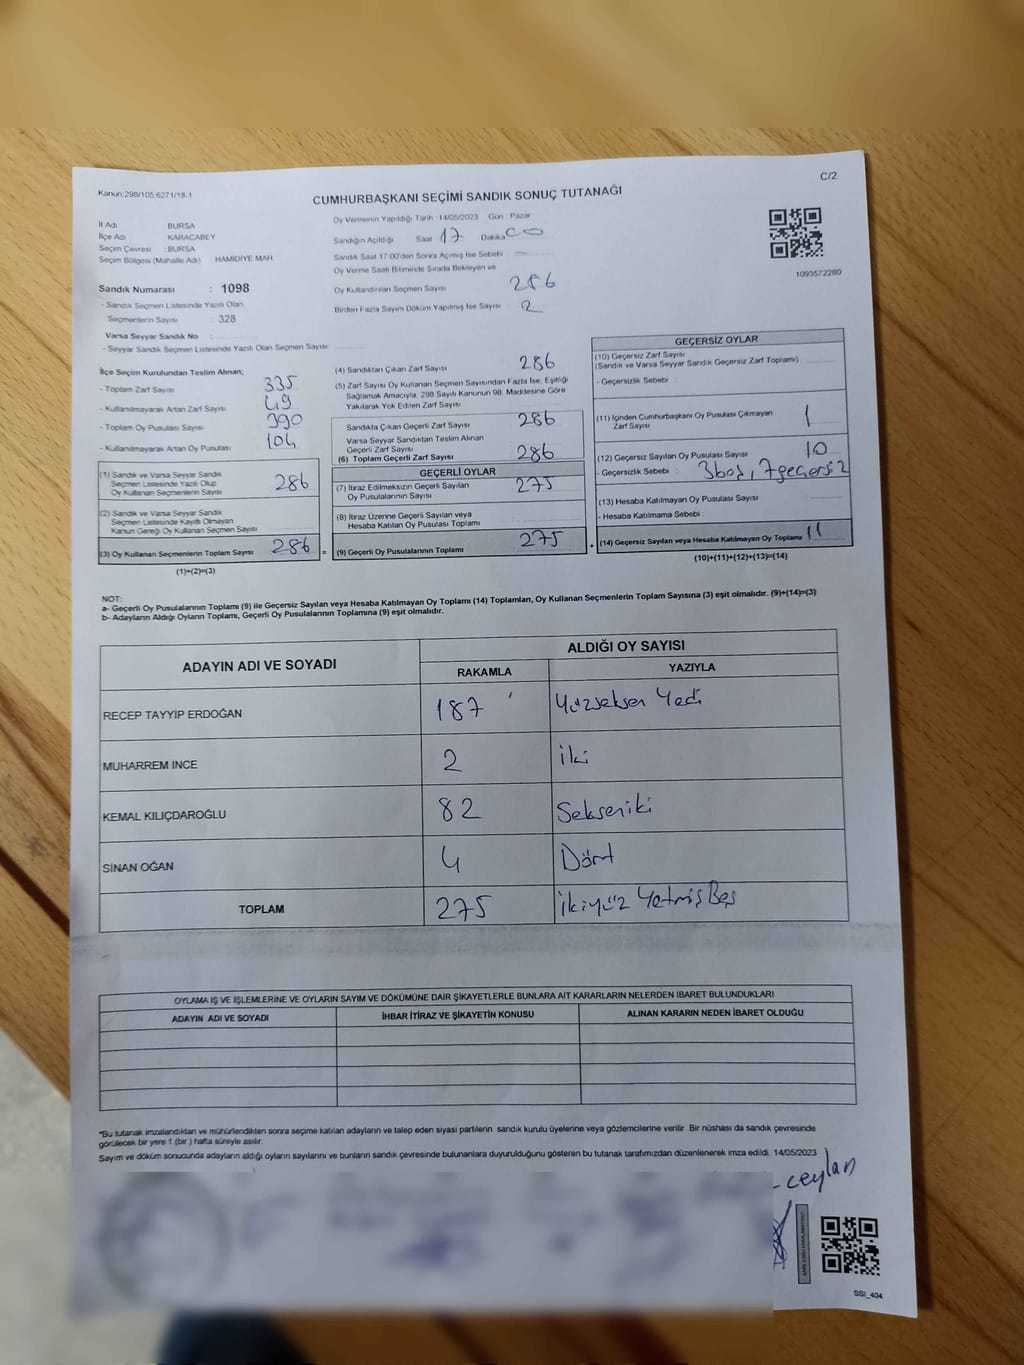 Kanun:298/105;6271/18-1
C/2
CUMHURBAŞKANI SEÇİMİ SANDIK SONUÇ TUTANAĞI
İl Adı BURSA
İlçe Adı KARACABEY
Seçim Çevresi : BURSA
Seçim Bölgesi (Mahalle Adı) HAMİDİYE MAH
Sandık Numarası : 1098
- Sandık Seçmen Listesinde Yazılı Olan
Seçmenlerin Sayısı : 328
Varsa Seyyar Sandık No :
- Seyyar Sandık Seçmen Listesinde Yazılı Olan Seçmen Sayısı:
Oy Vermenin Yapıldığı Tarih 14/05/2023 Gün Pazar
Sandığın Açıldığı Saat 17 Dakika 00
Sandık Saat 17:00'den Sonra Açılmış İse Sebebi :
Oy Verme Saati Bitiminde Sırada Bekleyen ve
Oy Kullandırılan Seçmen Sayısı 286
Birden Fazla Sayım Döküm Yapılmış İse Sayısı 2
1093572280
İlçe Seçim Kurulundan Teslim Alınan;
- Toplam Zarf Sayısı 335
- Kullanılmayarak Artan Zarf Sayısı 49
- Toplam Oy Pusulası Sayısı 390
- Kullanılmayarak Artan Oy Pusulası 104
(1) Sandık ve Varsa Seyyar Sandık
Seçmen Listesinde Yazılı Olup
Oy Kullanan Seçmenlerin Sayısı 286
(2) Sandık ve Varsa Seyyar Sandık
Seçmen Listesinde Kayıtlı Olmayan
Kanun Gereği Oy Kullanan Seçmen Sayısı
(3) Oy Kullanan Seçmenlerin Toplam Sayısı 286 =
(1)+(2)=(3)
(4) Sandıktan Çıkan Zarf Sayısı 286
(5) Zarf Sayısı Oy Kullanan Seçmen Sayısından Fazla İse, Eşitliği
Sağlamak Amacıyla, 298 Sayılı Kanunun 98. Maddesine Göre
Yakılarak Yok Edilen Zarf Sayısı
Sandıkta Çıkan Geçerli Zarf Sayısı 286
Varsa Seyyar Sandıktan Teslim Alınan
Geçerli Zarf Sayısı
(6) Toplam Geçerli Zarf Sayısı 286
GEÇERLİ OYLAR
(7) İtiraz Edilmeksizin Geçerli Sayılan
Oy Pusulalarının Sayısı 275
(8) İtiraz Üzerine Geçerli Sayılan veya
Hesaba Katılan Oy Pusulası Toplamı
(9) Geçerli Oy Pusulalarının Toplamı 275 +
GEÇERSİZ OYLAR
(10) Geçersiz Zarf Sayısı
(Sandık ve Varsa Seyyar Sandık Geçersiz Zarf Toplamı)
- Geçersizlik Sebebi :
(11) İçinden Cumhurbaşkanı Oy Pusulası Çıkmayan
Zarf Sayısı 1
(12) Geçersiz Sayılan Oy Pusulası Sayısı 10
- Geçersizlik Sebebi : 3 boş, 7 geçersiz
(13) Hesaba Katılmayan Oy Pusulası Sayısı
- Hesaba Katılmama Sebebi :
(14) Geçersiz Sayılan veya Hesaba Katılmayan Oy Toplamı 11
(10)+(11)+(12)+(13)=(14)
NOT:
a- Geçerli Oy Pusulalarının Toplamı (9) ile Geçersiz Sayılan veya Hesaba Katılmayan Oy Toplamı (14) Toplamları, Oy Kullanan Seçmenlerin Toplam Sayısına (3) eşit olmalıdır. (9)+(14)=(3)
b- Adayların Aldığı Oyların Toplamı, Geçerli Oy Pusulalarının Toplamına (9) eşit olmalıdır.
ADAYIN ADI VE SOYADI ALDIĞI OY SAYISI
RAKAMLA YAZIYLA
RECEP TAYYİP ERDOĞAN 187 Yüzseksen Yedi
MUHARREM İNCE 2 İki
KEMAL KILIÇDAROĞLU 82 Sekseniki
SİNAN OĞAN 4 Dört
TOPLAM 275 İkiyüz Yetmiş Beş
OYLAMA İŞ VE İŞLEMLERİNE VE OYLARIN SAYIM VE DÖKÜMÜNE DAİR ŞİKAYETLERLE BUNLARA AİT KARARLARIN NELERDEN İBARET BULUNDUKLARI
ADAYIN ADI VE SOYADI İHBAR İTİRAZ VE ŞİKAYETİN KONUSU ALINAN KARARIN NEDEN İBARET OLDUĞU
*Bu tutanak imzalandıktan ve mühürlendikten sonra seçime katılan adayların ve talep eden siyasi partilerin sandık kurulu üyelerine veya gözlemcilerine verilir. Bir nüshası da sandık çevresinde
görülecek bir yere 1 (bir) hafta süreyle asılır.
Sayım ve döküm sonucunda adayların aldığı oyların sayılarını ve bunların sandık çevresinde bulunanlara duyurulduğunu gösteren bu tutanak tarafımızdan düzenlenerek imza edildi. 14/05/2023
ceylan
SSI_404